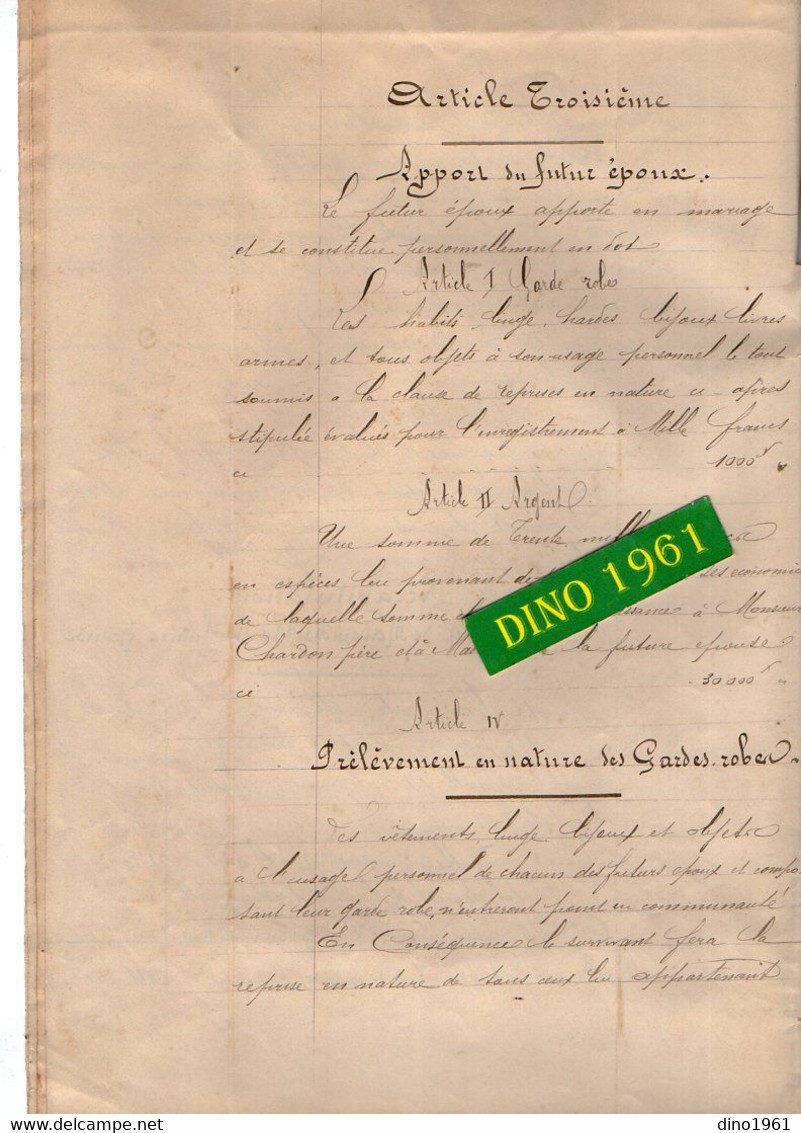 Article Troisième
Apport du futur époux.
Le futur époux apporte en mariage
et se constitue personnellement en dot
Article I Garde robe
Les habits, linge, hardes bijoux livres
armes, et tous objets à son usage personnel le tout
soumis a la clause de reprises en nature ci-après
stipulée évalués pour l'enregistrement à Mille francs
ci 1000f "
Article II Argent.
Une somme de Trente mille
en espèces lui provenant de ses economies
de laquelle somme à Monsieur
Chardon père et à la future epouse
ci 30000f "
Article IV
Prélèvement en nature des Gardes-robes.
Les vêtements, linge bijoux et objets
a l'usage personnel de chacun des futurs epoux et compo
sant leur garde robe, n'entreront point en communauté
En Conséquence le survivant fera la
reprise en nature de tous ceux lui appartenant
DINO 1961
delcampe.net
dino1961